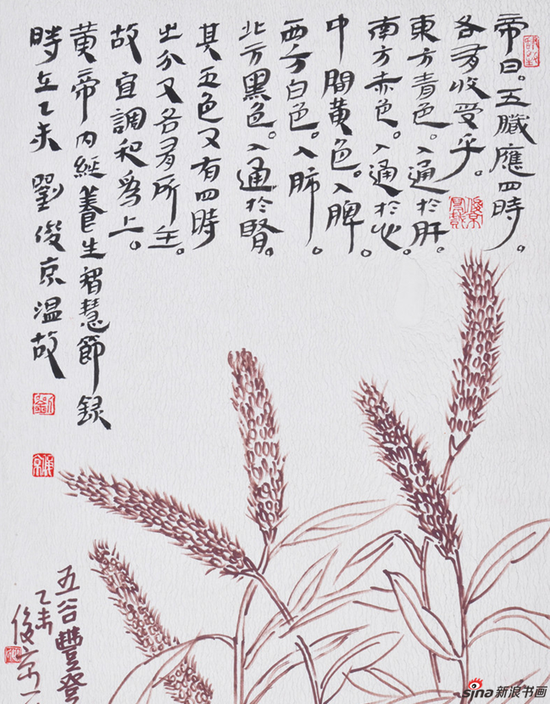 帝曰。五臟應四時。
各有收受乎。
東方青色。入通於肝。
南方赤色。入通於心。
中間黃色。入脾。
西方白色。入肺。
北方黑色。入通於腎。
其五色又有四時
之分又各有所主。
故宜調和為上。
黃帝內經養生智慧節録
時在乙未 劉俊京温故
五谷豐登
乙未
俊京
sina新浪书画